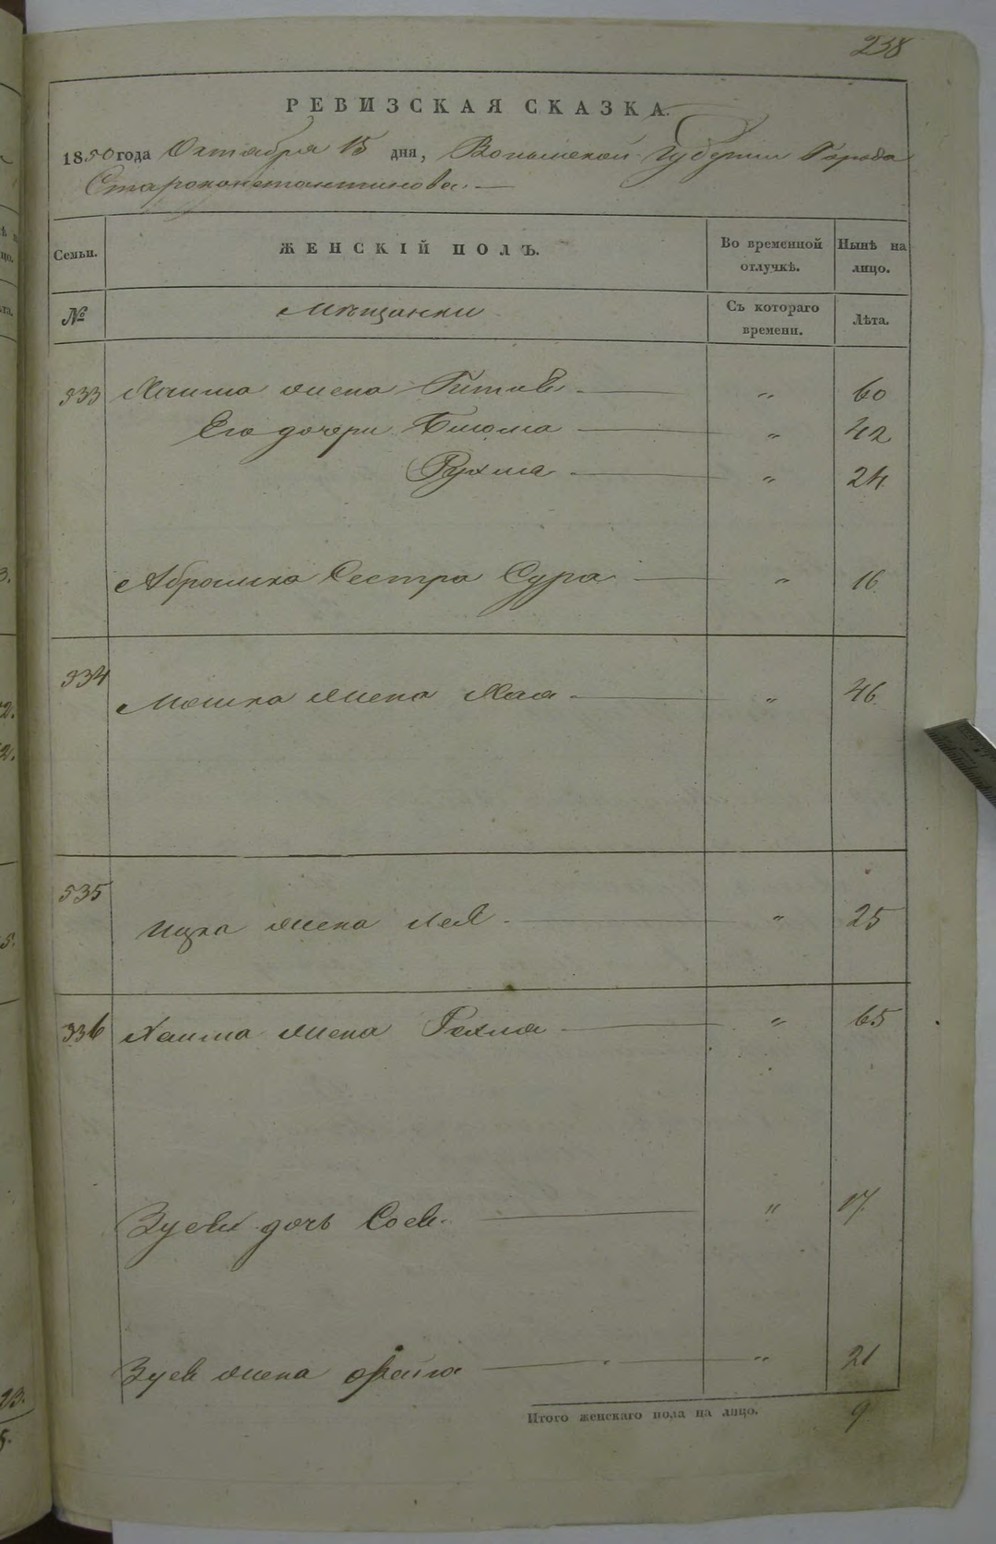 238
РЕВИЗСКАЯ СКАЗКА.
1850 года Октября 15 дня, Волынской Губернии Города
Староконстантинова.
Семьи. ЖЕНСКІЙ ПОЛЪ. Во временной отлучкѣ. Нынѣ на лицо.
№ Мѣщанки Съ котораго времени. Лѣта.
333 Хаима жена Гитля „ 60
Его дочери Блюма „ 42
Рухма „ 24
Абрамка Сестра Сура „ 16
334 Мошка жена Хая „ 46
335
Ицка жена Лея „ 25
336 Хаима жена „ 65
дочь Сося „ 17
жена Фейга „ 21
Итого женскаго пола на лицо. 9